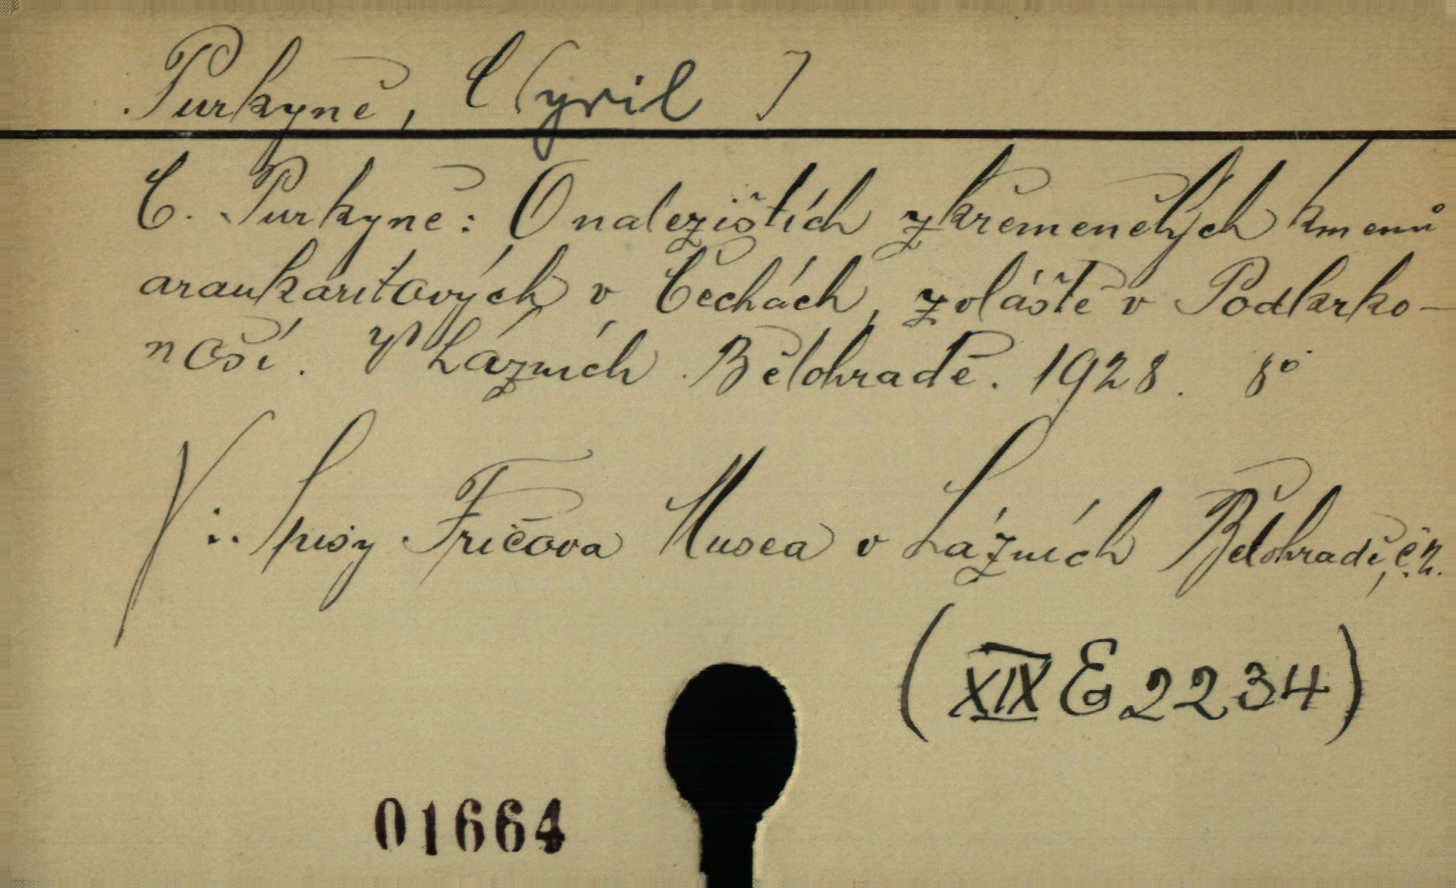 Purkyně, C(yril)
C. Purkyně: O nalezištích zkřemenělých kmenů
araukaritových v Čechách, zvláště v Podkrko-
noší. V Lázních Bělohradě. 1928. 8°
V: Spisy Fričova Musea v Lázních Bělohradě, č. 2.
(XIX E 2234)
01664